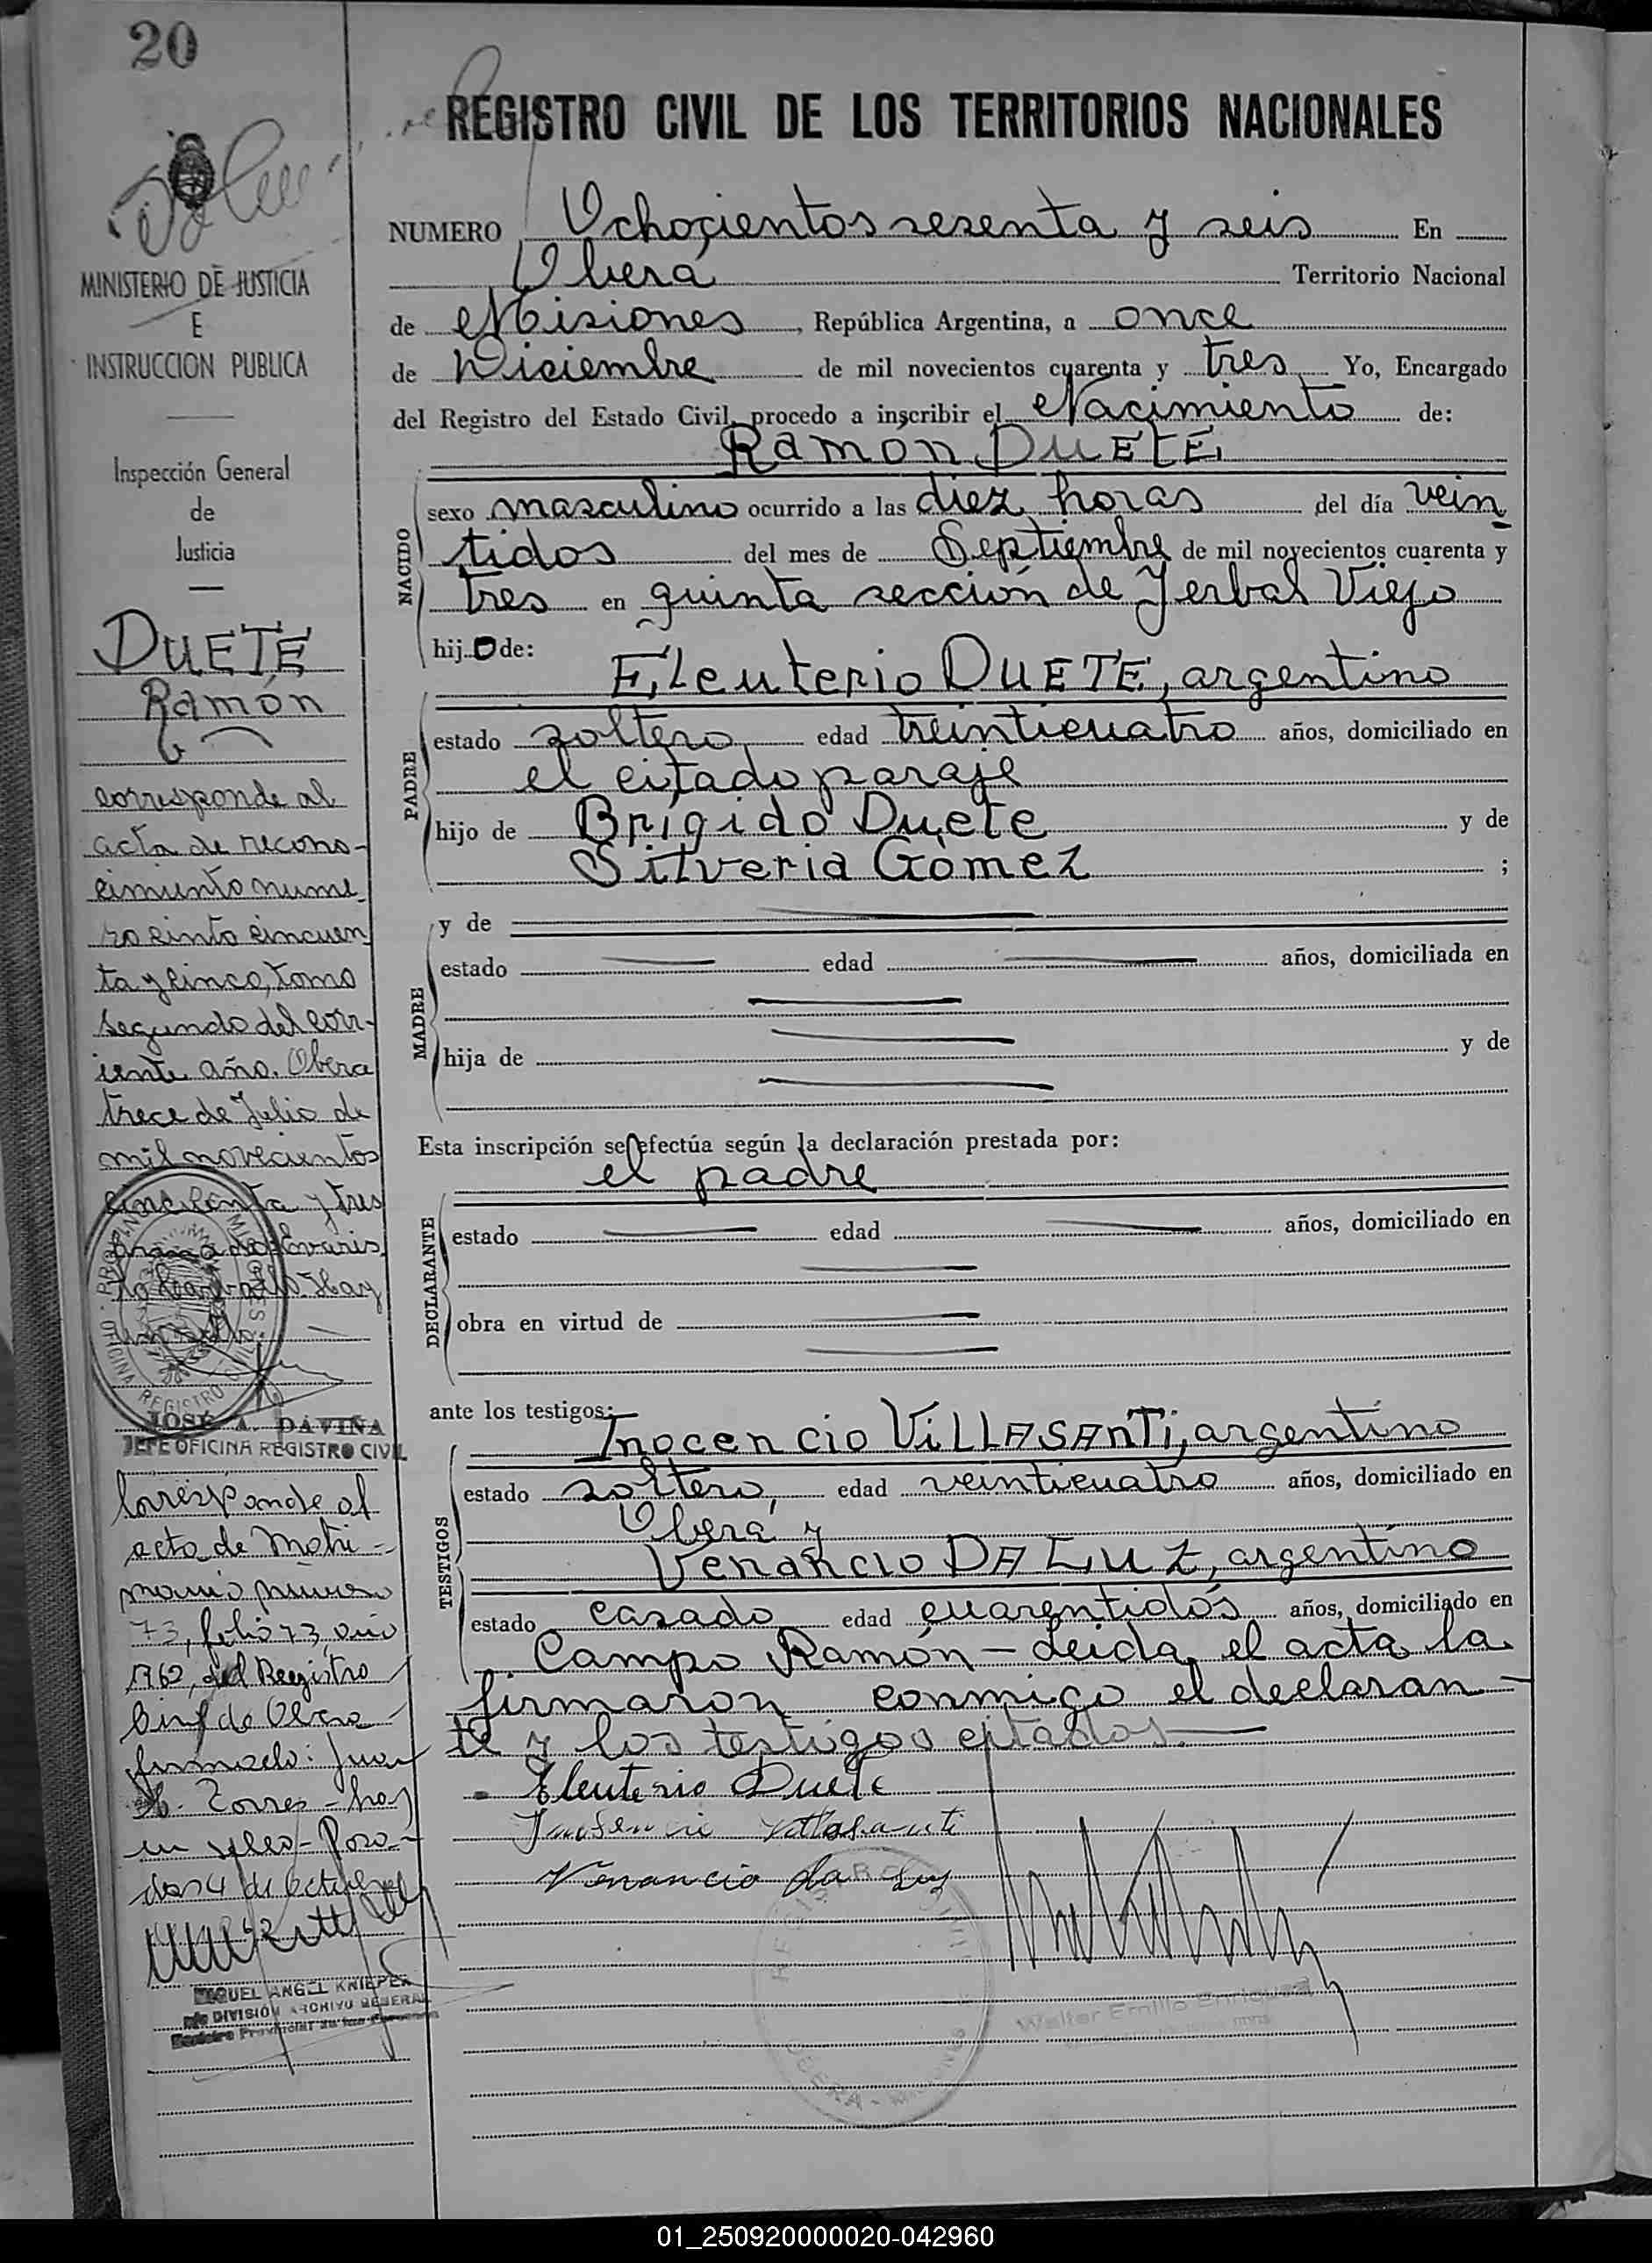 20
REGISTRO CIVIL DE LOS TERRITORIOS NACIONALES
MINISTERIO DE JUSTICIA
E
INSTRUCCION PUBLICA
Inspección General
de
Justicia
DUETE
Ramón
corresponde al
acta de recono-
cimiento nume
ro ciento cincuen
ta y cinco, tomo
segundo del corr-
iente año. Obera
trece de Julio de
mil novecientos
cincuenta y tres
Hay
un sello.
PROVINCIA MISIONES
OFICINA REGISTRO CIVIL
JOSÉ A. DAVIÑA
JEFE OFICINA REGISTRO CIVIL
Corresponde al
acta de Matri-
monio numero
73, folio 73, año
1962, del Registro
Civil de Obera
firmado: Juan
H. Torres - hay
un sello - Posa-
das 4 de Octubre
MIGUEL ANGEL KNIEPER
DIVISIÓN ARCHIVO GENERAL
NUMERO Ochocientos sesenta y seis En
Oberá Territorio Nacional
de Misiones, República Argentina, a once
de Diciembre de mil novecientos cuarenta y tres Yo, Encargado
del Registro del Estado Civil, procedo a inscribir el Nacimiento de:
Ramón DUETE
NACIDO
sexo masculino ocurrido a las diez horas del día vein
tidos del mes de Septiembre de mil novecientos cuarenta y
tres en quinta sección de Yerbal Viejo
hijo de:
PADRE
Eleuterio DUETE, argentino
estado soltero, edad treinticuatro años, domiciliado en
el citado paraje
hijo de Brígido Duete y de
Silveria Gómez ;
MADRE
y de
estado edad años, domiciliada en
hija de y de
Esta inscripción se efectúa según la declaración prestada por:
el padre
DECLARANTE
estado edad años, domiciliado en
obra en virtud de
ante los testigos:
TESTIGOS
Inocencio VILLASANTI, argentino
estado soltero, edad veinticuatro años, domiciliado en
Oberá y
Venancio DA LUZ, argentino
estado casado edad cuarentidós años, domiciliado en
Campo Ramón - Leida el acta la
firmaron conmigo el declaran-
te y los testigos citados.
Eleuterio Duete
Villasanti
Venancio da Luz
REGISTRO CIVIL
OBERA - MISIONES
Walter Emilio Enriquez
01_250920000020-042960